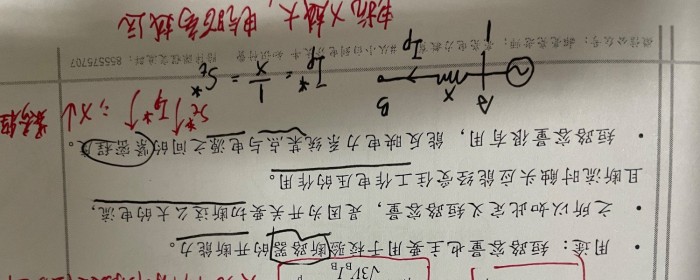 √3V_B I_B
• 用途：短路容量也主要用于校验断路器的开断能力。
• 之所以如此定义短路容量，是因为开关要切断这么大的电流，
且断流时触头应能经受住工作电压的作用。
• 短路容量很有用，能反映电力系统某点与电源之间的紧密程度。
Sc*↑ Ip*↑ ；X↓
A X B
Ip
Ip* = 1/X = Sc*
微信公众号：
855575707
电抗X越大，